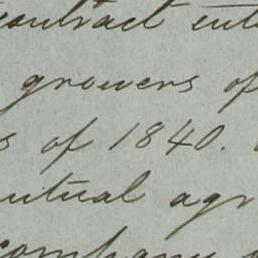 contract
growers of
of 1840.
mutual
company